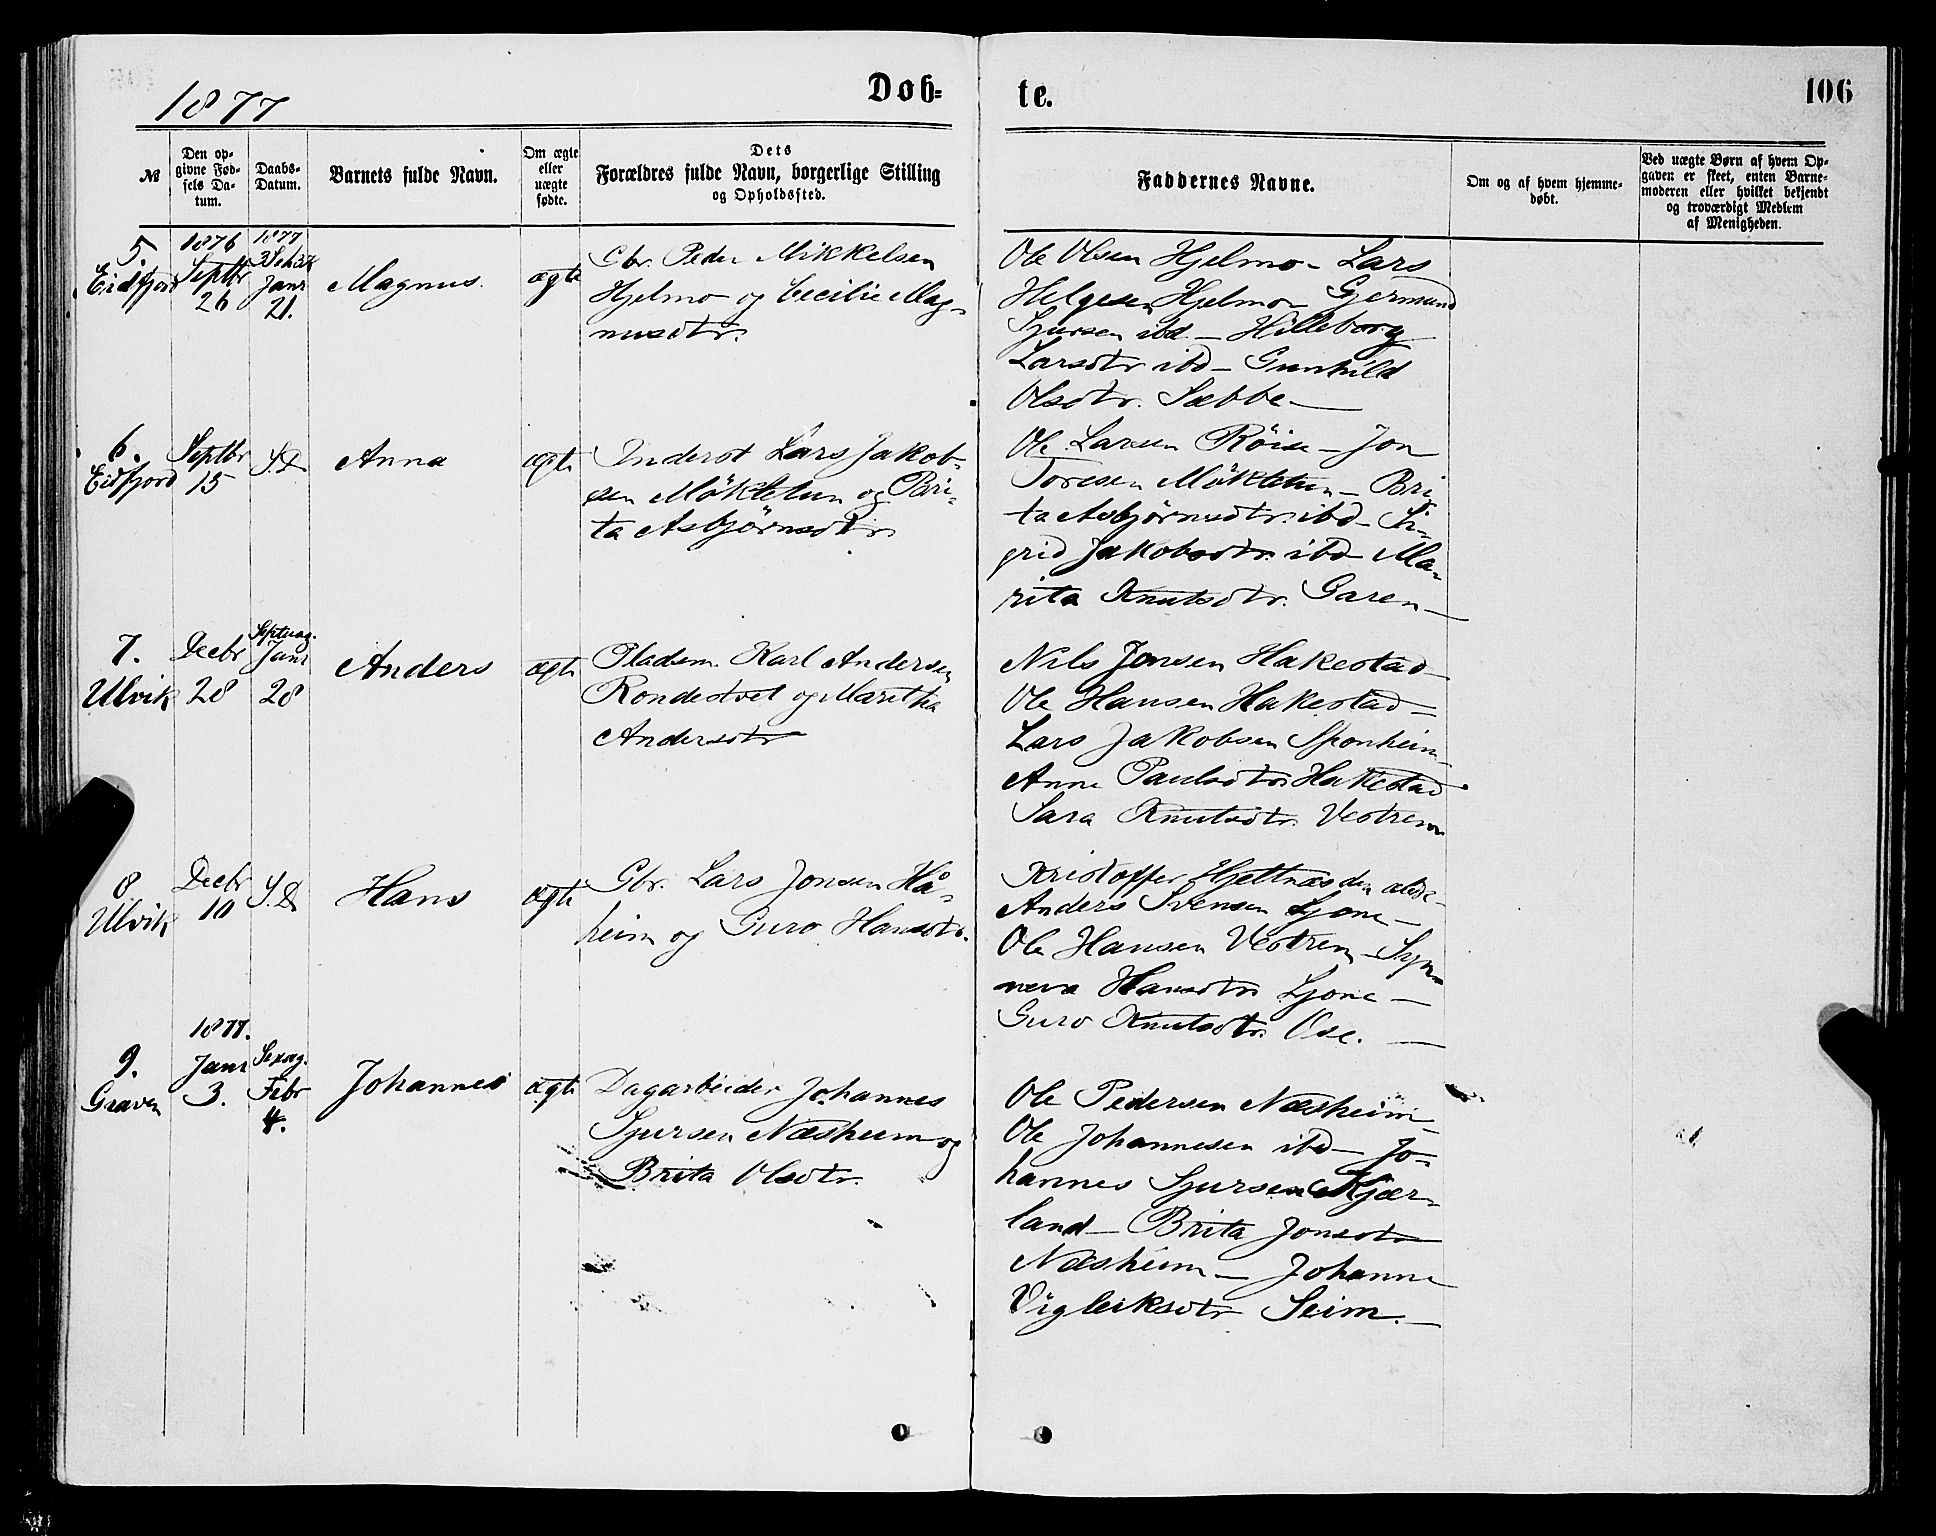 1877
Døb=
te.
106
№
Den op=
givne Fød=
sels Da=
tum.
Daabs=
Datum.
Barnets fulde Navn.
Om ægte
eller
uægte
fødte.
Dets
Forældres fulde Navn, borgerlige Stilling
og Opholdssted.
Faddernes Navne.
Om og af hvem hjemme=
døbt.
Ved uægte Børn af hvem Op=
gaven er skeet, enten Barne=
moderen eller hvilket bekjendt
og troværdigt Medlem
af Menigheden.
5.
Eidfjord
1876
Septbr
26
1877
Janr
21.
Magnus.
ægte
Gbr. Peder Mikkelsen
Hjelmo og Cecilie Mag=
nusdtr.
Ole Olsen Hjelmo - Lars
Helgesen Hjelmo - Gjermund
Sjursen ibd. - Hilleborg
Larsdtr ibd - Gunhild
Olsdtr. Sæbbe -
6.
Eidfjord
Septbr
15
S.D
Anna
ægte
Inderst Lars Jakob=
sen Möklelun og Bri=
ta Asbjörnsdtr.
Ole Larsen Röise - Jon
Toresen Mökletun - Bri
ta Asbjörnsdtr. ibd - Si=
grid Jakobsdtr. ibd - Ma=
rita Knutsdtr. Garen -
7.
Ulvik
Decbr
28
Septuag.
Janr
28
Anders
ægte
Pladsm. Karl Andersen
Rondestvet og Maritha
Andersdtr
Nils Jonsen Hakestad -
Ole Hansen Hakestad -
Lars Jakobsen Sponheim
Anna Paulsdtr. Hakestad
Sara Knutsdtr. Vestrem
8.
Ulvik
Decbr
10
S.D
Hans
ægte
Gbr. Lars Jonsen Hå=
heim og Guro Hansdtr.
Kristoffer Hjeltnæs den ældre -
Anders Svensen Ljone -
Ole Hansen Vestrem - Syn=
neva Hansdtr Ljone -
Guro Knutsdtr. Ose. -
9.
Graven
1877.
Janr
3.
Sexag.
Febr
4.
Johannes
ægte
Dagarbeider Johannes
Sjursen Næsheim og
Brita Olsdtr.
Ole Pedersen Næsheim -
Ole Johannesen ibd - Jo=
hannes Sjursen Kjær=
land - Brita Jonsdtr
Næsheim - Johanna
Vigleiksdtr Seim. -